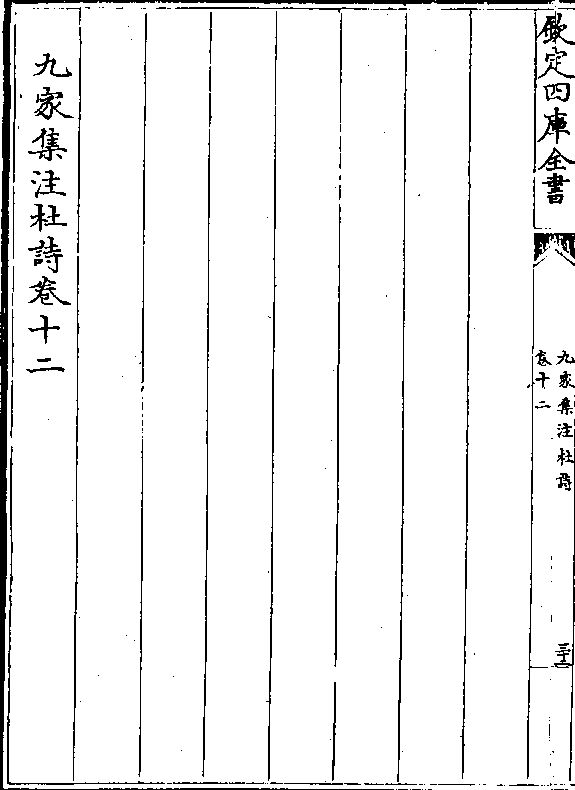 欽定四庫全書
九家集注杜詩
卷十二
三十二
九家集注杜詩卷十二